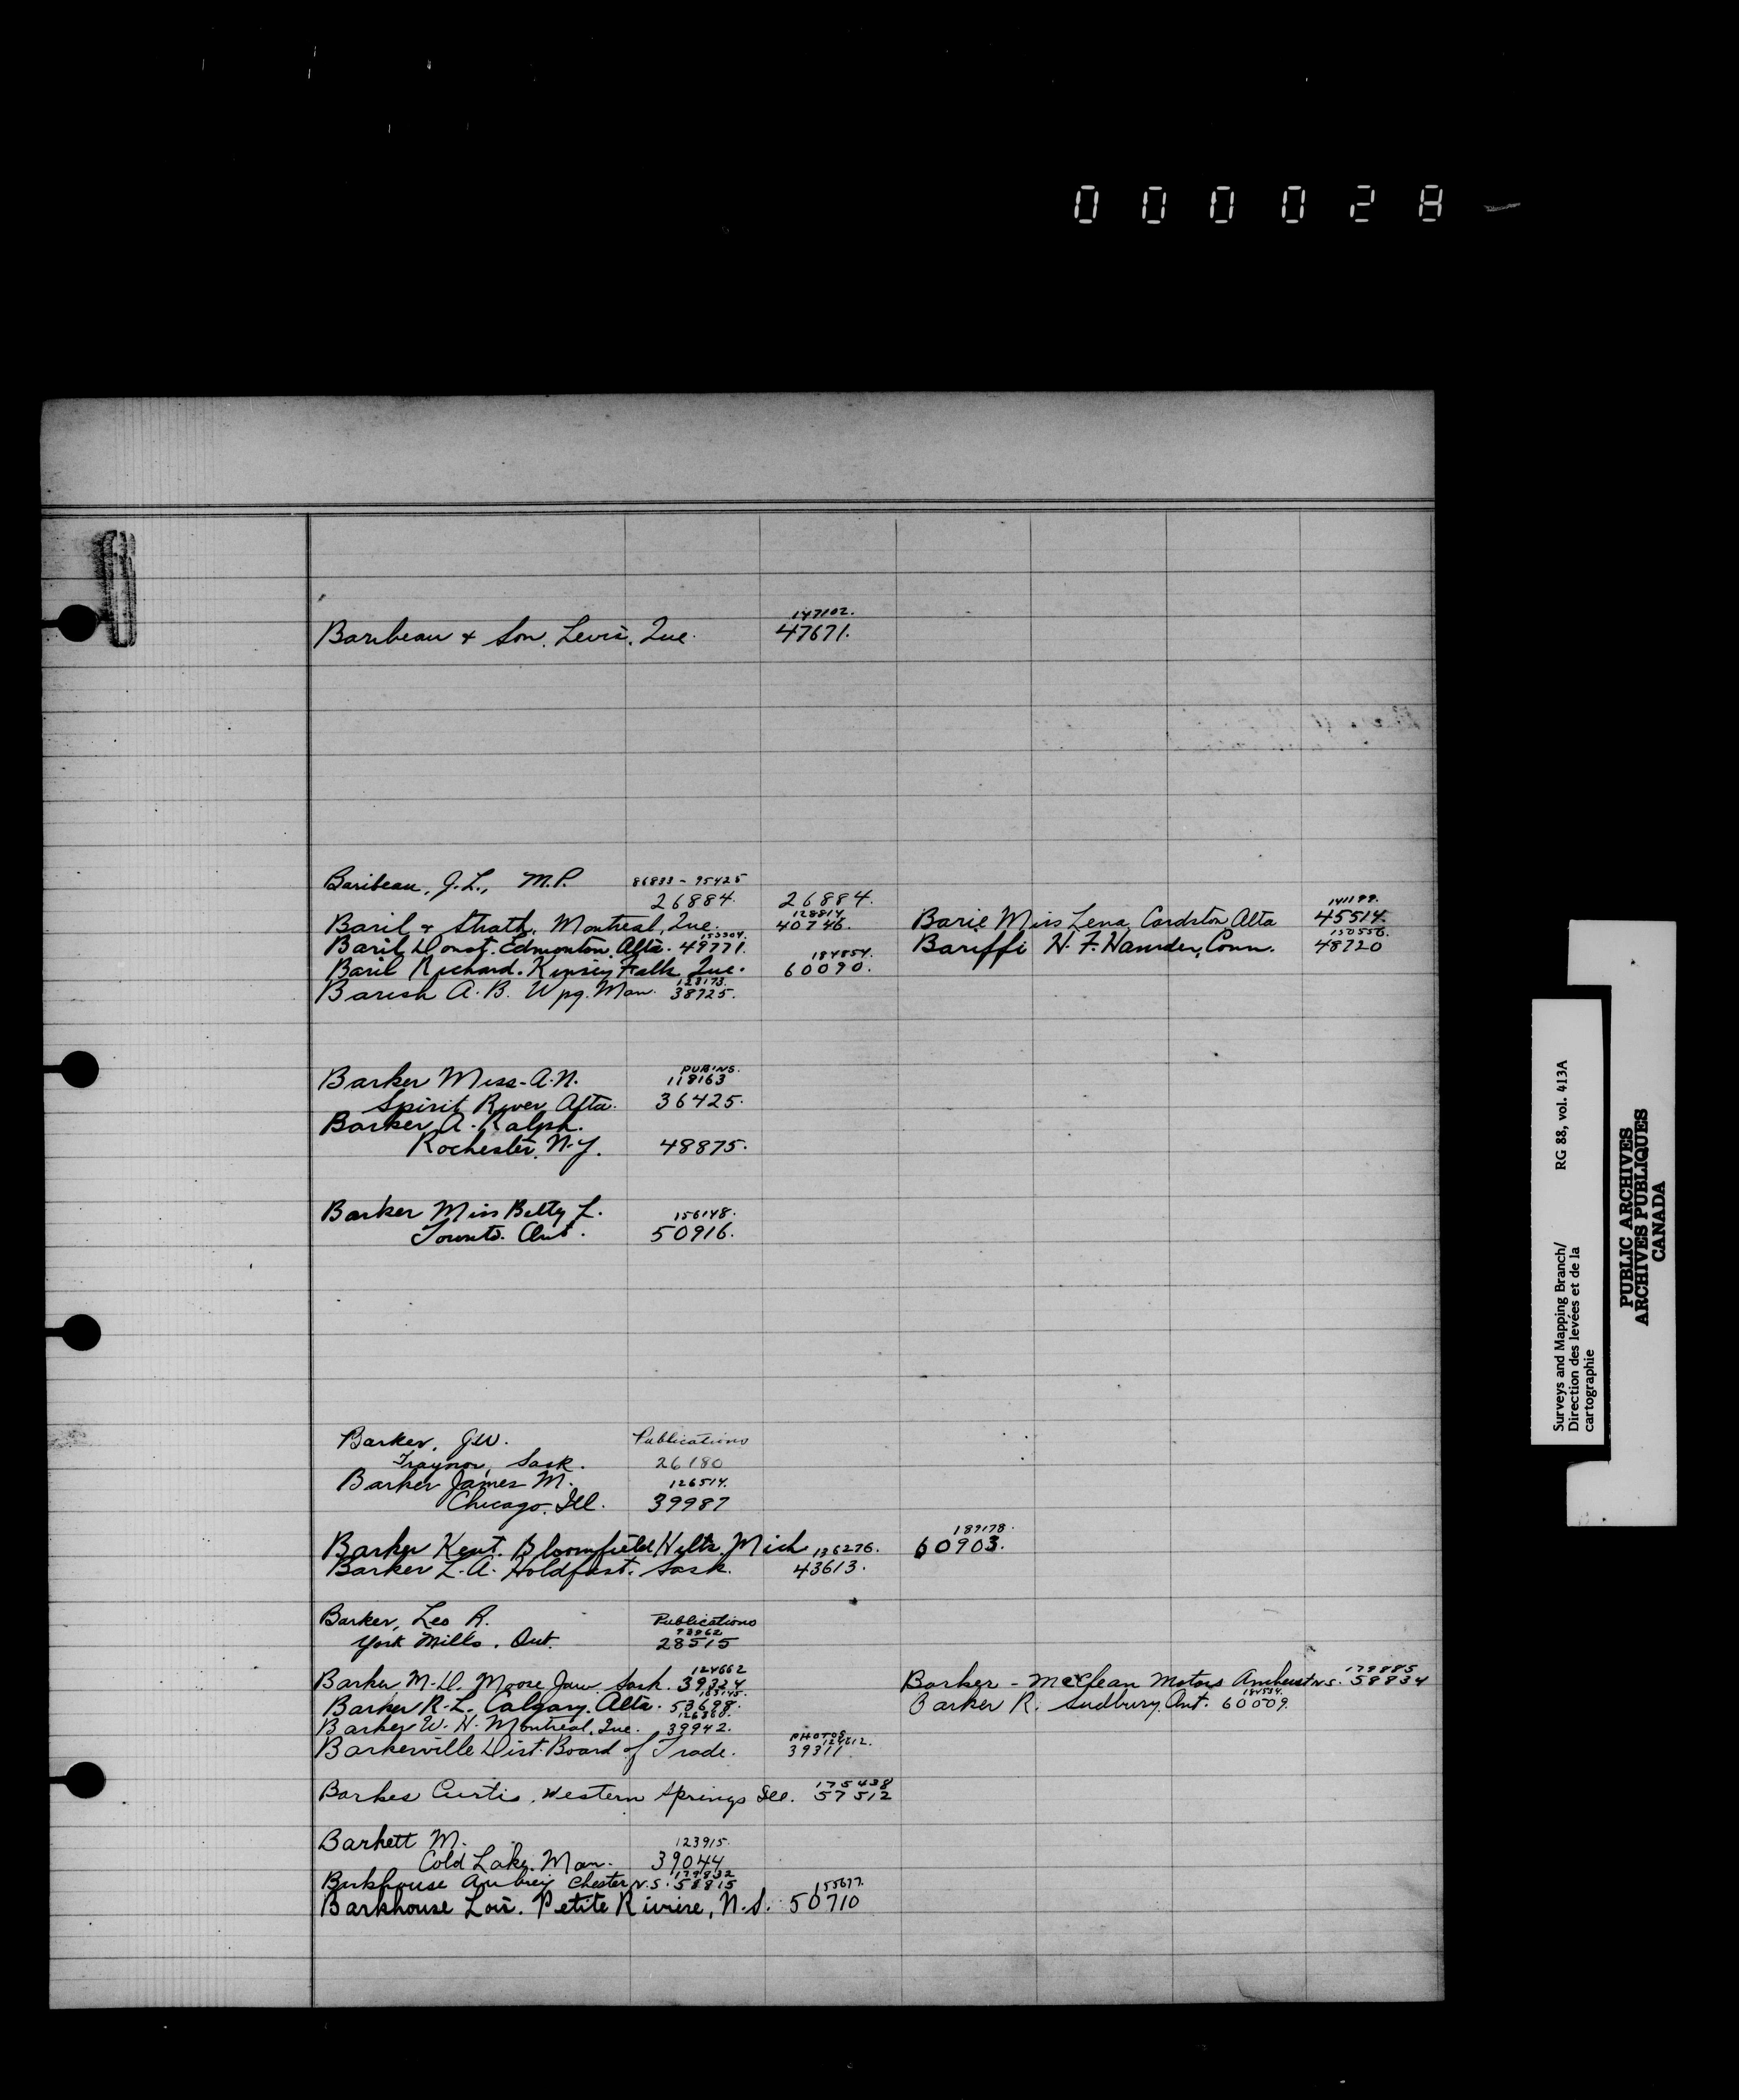 000028
147102.
Baribeau & Son. Levis. Que. 47671.
Baribeau, J.L., M.P. 86833-95425
26884. 26884.
Baril & Strath. Montreal, Que. 128814. 40746.
Barie Miss Lena, Cardston Alta 141199. 45514.
Baril Donat. Edmonton. Alta. 153304. 49771.
Bariffi H. F. Hamden, Conn. 150556. 48720
Baril Richard. Kinsey Falls Que. 184854. 60090.
Barish A. B. Wpg. Man. 123173. 38725.
Barker Miss A.N. PUB'NS. 118163
Spirit River Alta. 36425.
Barker A. Ralph.
Rochester, N.Y. 48875.
Barker Miss Betty L. 156148.
Toronto. Ont. 50916.
Barker, J.W. Publications
Traynor, Sask. 26180
Barker James M. 126514.
Chicago. Ill. 39987
Barker Kent. Bloomfield Hills. Mich 187178. 60903.
Barker L.A. Holdfast. Sask. 136276. 43613.
Barker, Leo R. Publications
73962
York Mills. Ont. 28515
Barker M.D. Moose Jaw Sask. 124662 39324
Barker - McClean Motors Amherst N.S. 179885 58834
Barker R.L. Calgary. Alta. 163145. 53698.
Barker R. Sudbury. Ont. 184534. 60009.
Barker W. H. Montreal, Que. 126368. 39942.
Barkerville Dist. Board of Trade. PHOTOS 124612. 39311.
Barkes Curtis, Western Springs Ill. 175438 57512
Barkett M. 123915.
Cold Lake. Man. 39044
Barkhouse Aubrey Chester N.S. 179832 58815
Barkhouse Lois. Petite Riviere, N.S. 155677. 50710
Surveys and Mapping Branch/ RG 88, vol. 413A
Direction des levées et de la
cartographie
PUBLIC ARCHIVES
ARCHIVES PUBLIQUES
CANADA